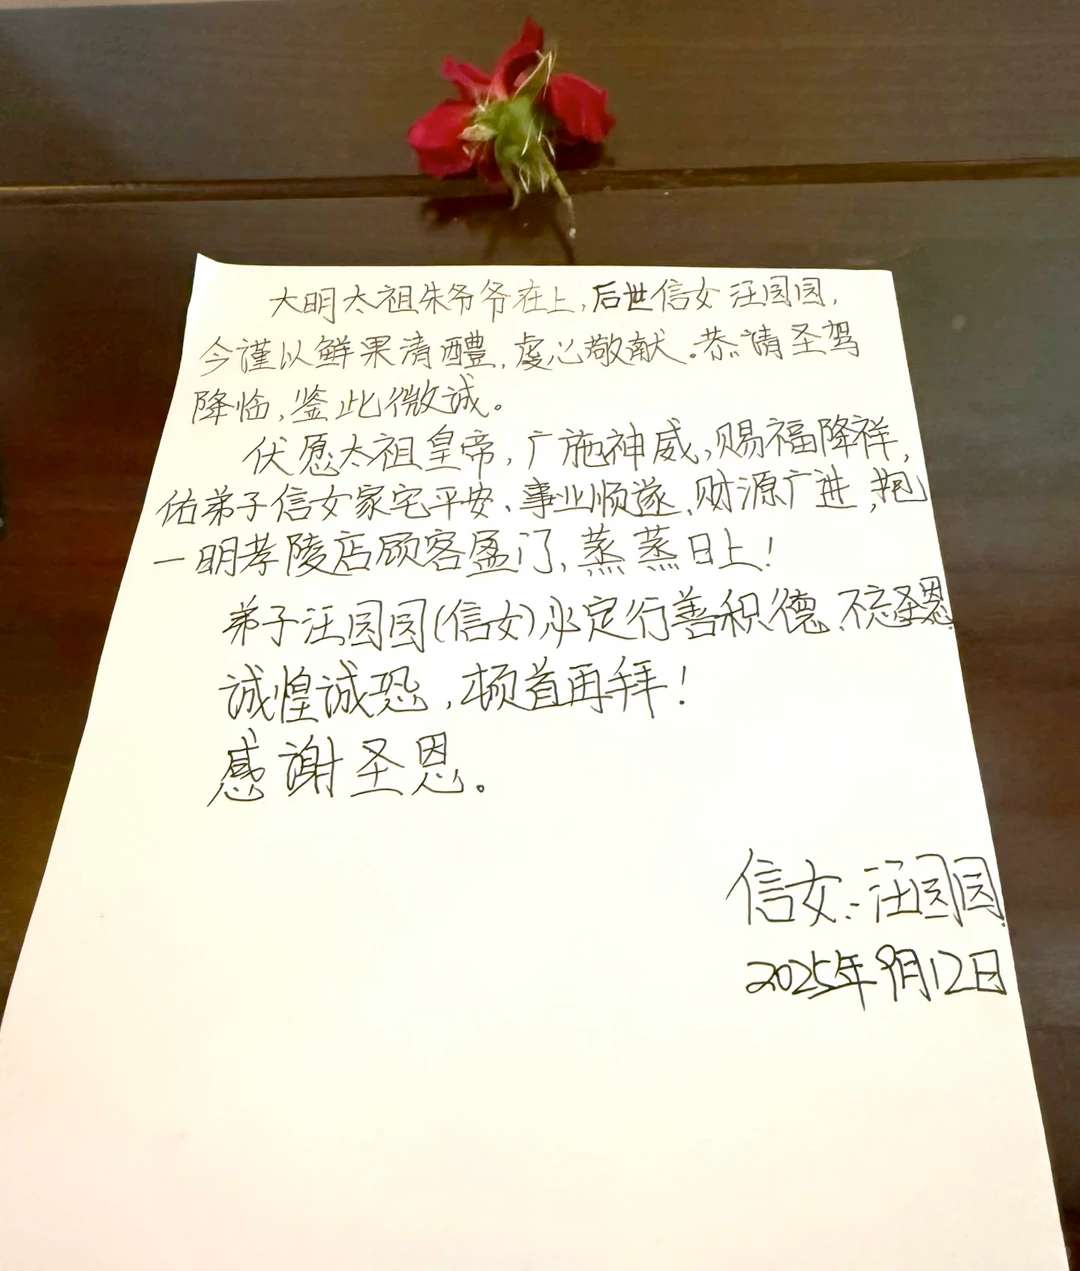 大明太祖朱爷爷在上,后世信女汪园园,
今谨以鲜果清醴,虔心敬献。恭請圣驾
降临,鉴此微诚。
伏愿太祖皇帝,广施神威,赐福降祥,
佑弟子信女家宅平安、事业顺遂、财源广进,抱
一明孝陵店顾客盈门,蒸蒸日上!
弟子汪园园(信女)必定行善积德、不忘圣恩
诚惶诚恐,顿首再拜!
感谢圣恩。
信女:汪园园
2025年9月12日